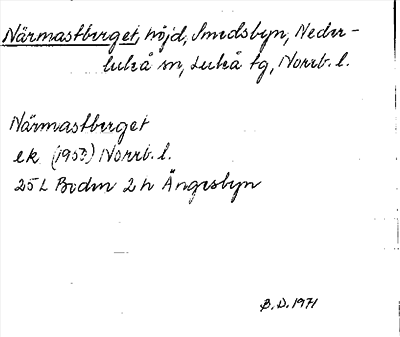 Närmastberget, höjd, Smedsbyn, Neder-
luleå sn, Luleå tg, Norrb. l.
Närmastberget
ek (1953) Norrb. l.
25L Boden 2h Ängesbyn
B.D. 1971